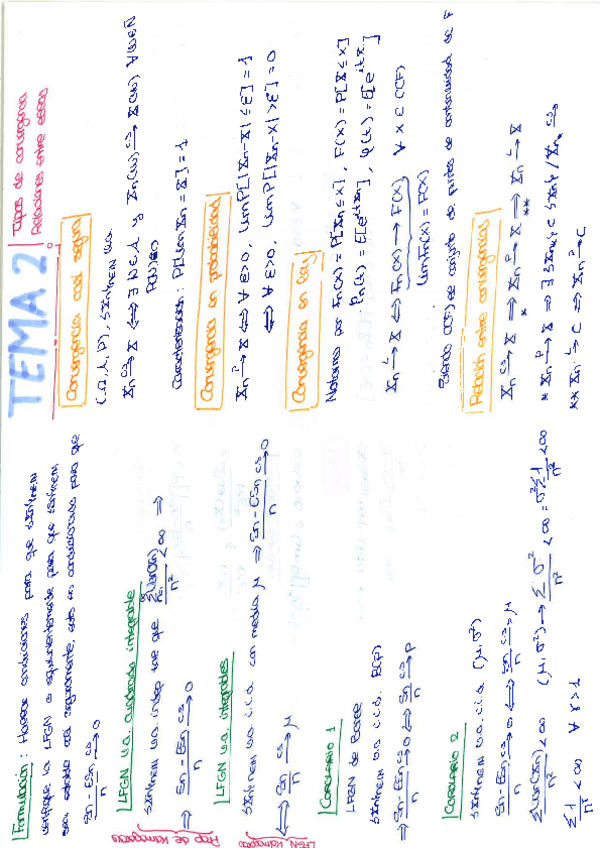 TEMA 2
Tipos de convergencia
Relaciones entre ellas
Convergencia casi segura
(Ω, A, P), {Xn}n∈ℕ v.a.
Xn →cs X ⟺ ∃ N ∈ A y Xn(ω) → X(ω) ∀ω∈N̄
P(N)=0
Caracterización: P[Lim Xn = X] = 1
Convergencia en probabilidad
Xn →P X ⟺ ∀ ε>0, Lim P[|Xn-X| ≤ ε] = 1
⟺ ∀ ε>0, Lim P[|Xn-X| > ε] = 0
Convergencia en Ley
Notamos por Fn(x) = P[Xn ≤ x], F(x) = P[X ≤ x]
φn(t) = E[e^itXn], φ(t) = E[e^itX]
Xn →L X ⟺ Fn(x) → F(x) ∀ x ∈ C(F)
Lim Fn(x) = F(x)
Siendo C(F) el conjunto de puntos de continuidad de F
Relación entre convergencias
Xn →cs X ⟹ Xn →P X ⟹ Xn →L X
* **
* Xn →P X ⟹ ∃ {Xnk} ⊂ {Xn} / Xnk →cs
** Xn →L C ⟹ Xn →P C
Formulación: Hallar condiciones para que {Xn}n∈ℕ
verifique la LFGN o equivalentemente para que {Xn}n∈ℕ
sea estable casi seguramente, esto es condiciones para que
Sn - ESn / n →cs 0
LFGN v.a. cuadrado integrable
{Xn}n∈ℕ v.a. indep tales que Σ n=1 ∞ Var(Xn) / n² < ∞ ⟹
⟹ Sn - ESn / n →cs 0
Prop de Kolmogorov
LFGN v.a. integrables
{Xn}n∈ℕ v.a. i.i.d. con media μ ⟹ Sn - ESn / n →cs 0
⟺ Sn / n →cs μ
LFGN Kolmogorov
Corolario 1
LFGN de Borel
{Xn}n∈ℕ v.a. i.i.d. B(p)
⟹ Sn - ESn / n →cs 0 ⟺ Sn / n →cs p
Corolario 2
{Xn}n∈ℕ v.a. i.i.d (μ, σ²)
Sn - ESn / n →cs 0 ⟺ Sn / n →cs μ
Σ Var(Xn) / n² < ∞ (μ, σ²) → Σ σ² / n² < ∞ = σ² Σ 1 / n² < ∞
Σ 1 / n^r < ∞ ∀ r > 1